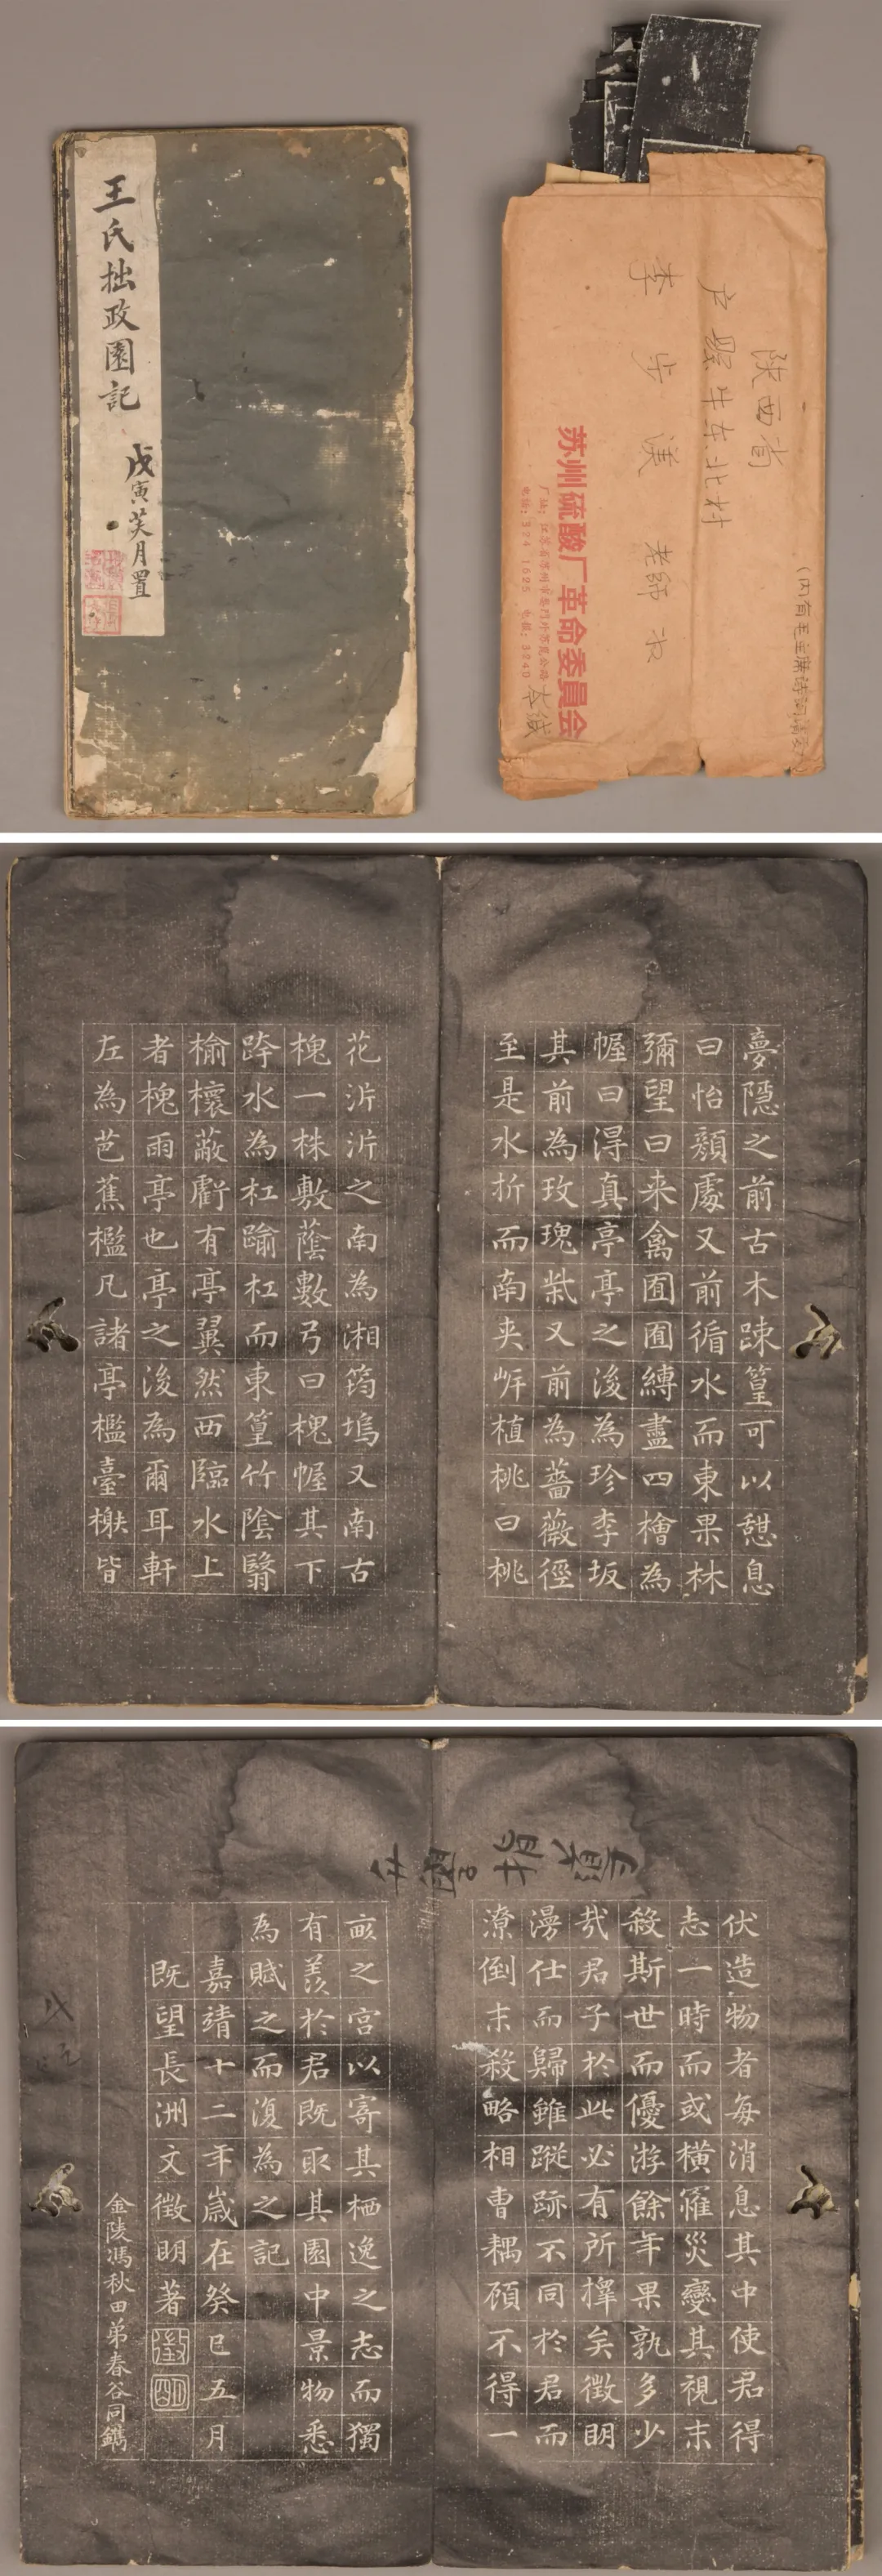 王氏拙政園記
戊寅芙月置
陝西省
户縣牛东北村
李步漢老師收
(内有毛主席诗词请勿
苏州硫酸厂革命委員会
厂址:江苏省苏州市葑門外苏昆公路
电话:374 1525 电报:3240
夢隱之前古木疎篁可以憇息
曰怡顏處又前循水而東果林
彌望曰来禽囿囿縛盡四檜為
幄曰淂真亭亭之浚為珍李坂
其前為玫瑰柴又前為薔薇徑
至是水折而南夹岸植桃曰桃
花沜沜之南為湘筠塢又南古
槐一株敷蔭數弓曰槐幄其下
跨水為杠踰杠而東篁竹陰翳
榆櫰蔽虧有亭翼然西臨水上
者槐雨亭也亭之浚為爾耳軒
左為芭蕉檻凡諸亭檻臺榭皆
伏造物者每消息其中使君得
志一時而或橫罹災變其視末
殺斯世而優游餘年果孰多少
㢤君子於此必有所擇矣徵明
漫仕而歸雖蹤跡不同於君而
潦倒末殺略相曹耦顾不得一
畝之宫以寄其栖逸之志而獨
有羨於君既取其園中景物悉
為賦之而復為之記
嘉靖十二年嵗在癸巳五月
既望長洲文徵明著
徵
明
金陵馮秋田弟春谷同鐫